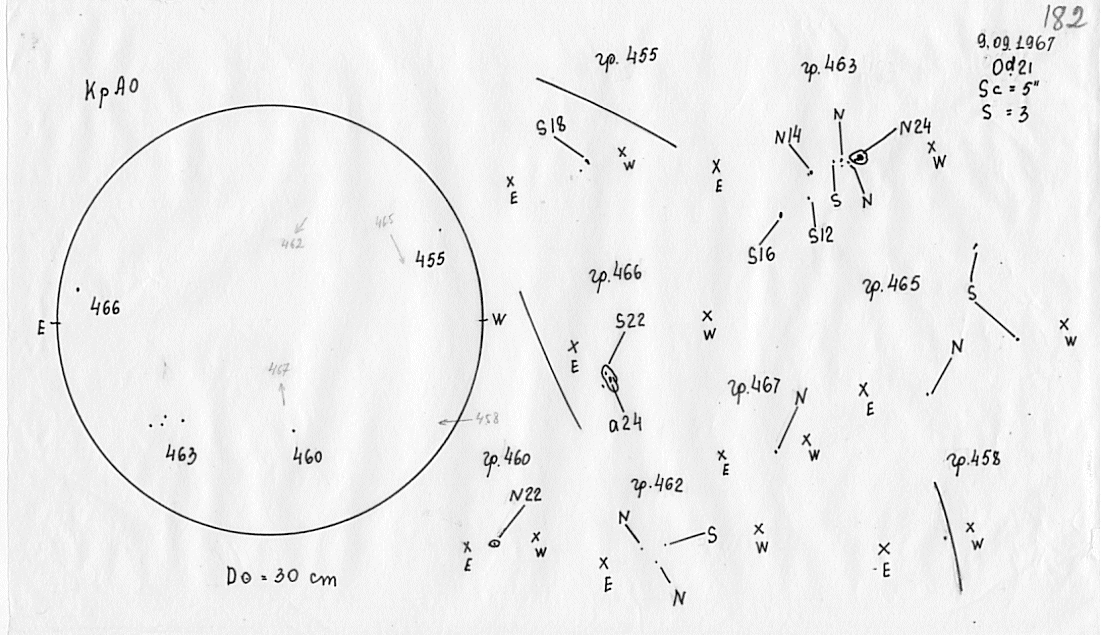 182
9.09.1967
Od 21
Sc = 5"
S = 3
КрАО
E
W
462
465
455
466
467
458
463
460
D⊙ = 30 cm
гр. 455
S18
X E
X W
гр. 463
N
N14
N24
X E
X W
S
N
S12
S16
гр. 466
S22
X E
X W
a24
гр. 465
S
N
X E
X W
гр. 467
N
X E
X W
гр. 460
N22
X E
X W
гр. 462
N
S
N
X E
X W
гр. 458
X E
X W